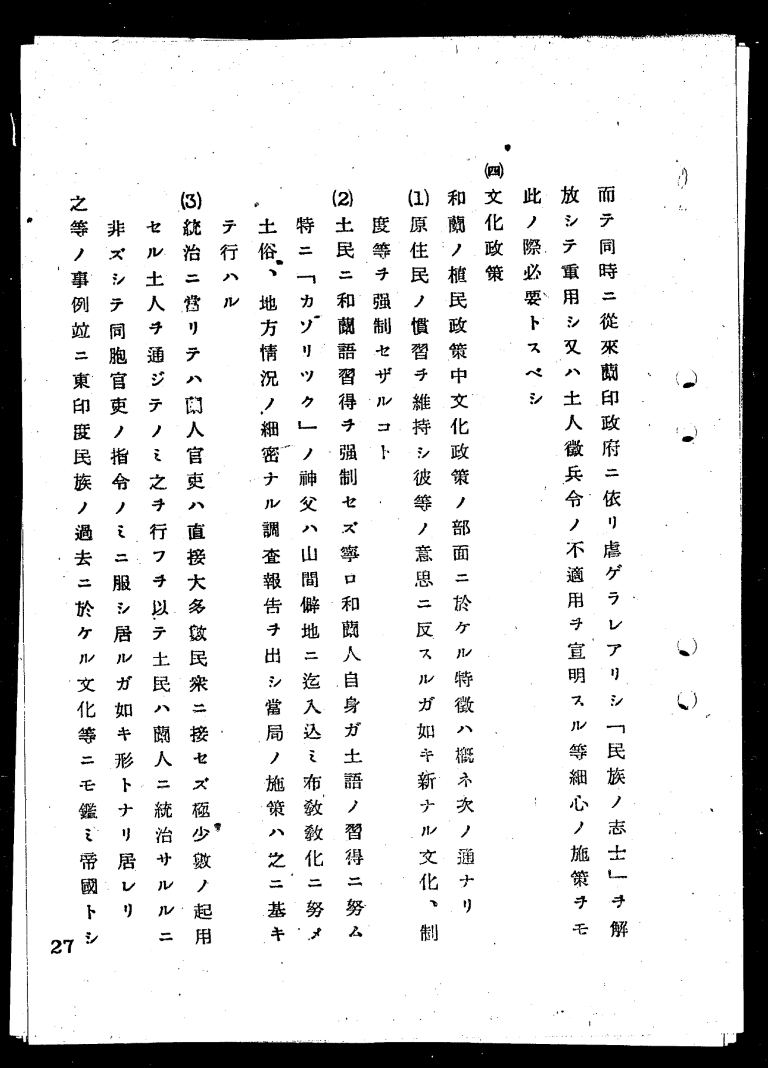 而テ同時ニ從來蘭印政府ニ依リ虐ゲラレアリシ「民族ノ志士」ヲ解
放シテ重用シ又ハ土人徵兵令ノ不適用ヲ宣明スル等細心ノ施策ヲモ
此ノ際必要トスベシ
㈣文化政策
和蘭ノ植民政策中文化政策ノ部面ニ於ケル特徵ハ槪ネ次ノ通ナリ
(1)原住民ノ慣習ヲ維持シ彼等ノ意思ニ反スルガ如キ新ナル文化、制
度等ヲ强制セザルコト
(2)土民ニ和蘭語習得ヲ强制セズ寧ロ和蘭人自身ガ土語ノ習得ニ努ム
特ニ「カソリツク」ノ神父ハ山間僻地ニ迄入込ミ布敎敎化ニ努メ
土俗、地方情況ノ細密ナル調査報告ヲ出シ當局ノ施策ハ之ニ基キ
テ行ハル
(3)統治ニ當リテハ蘭人官吏ハ直接大多數民衆ニ接セズ極少數ノ起用
セル土人ヲ通ジテノミ之ヲ行フヲ以テ土民ハ蘭人ニ統治サルルニ
非ズシテ同胞官吏ノ指令ノミニ服シ居ルガ如キ形トナリ居レリ
之等ノ事例竝ニ東印度民族ノ過去ニ於ケル文化等ニモ鑑ミ帝國トシ
27